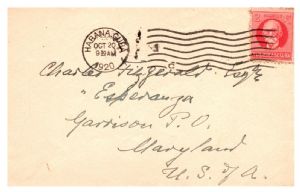 HABANA, CUBA
OCT 20
9 30 AM
1920
Charles Fitzgerald Esqre
"Esperanza
Garrison P.O.
Maryland
U.S. of A.